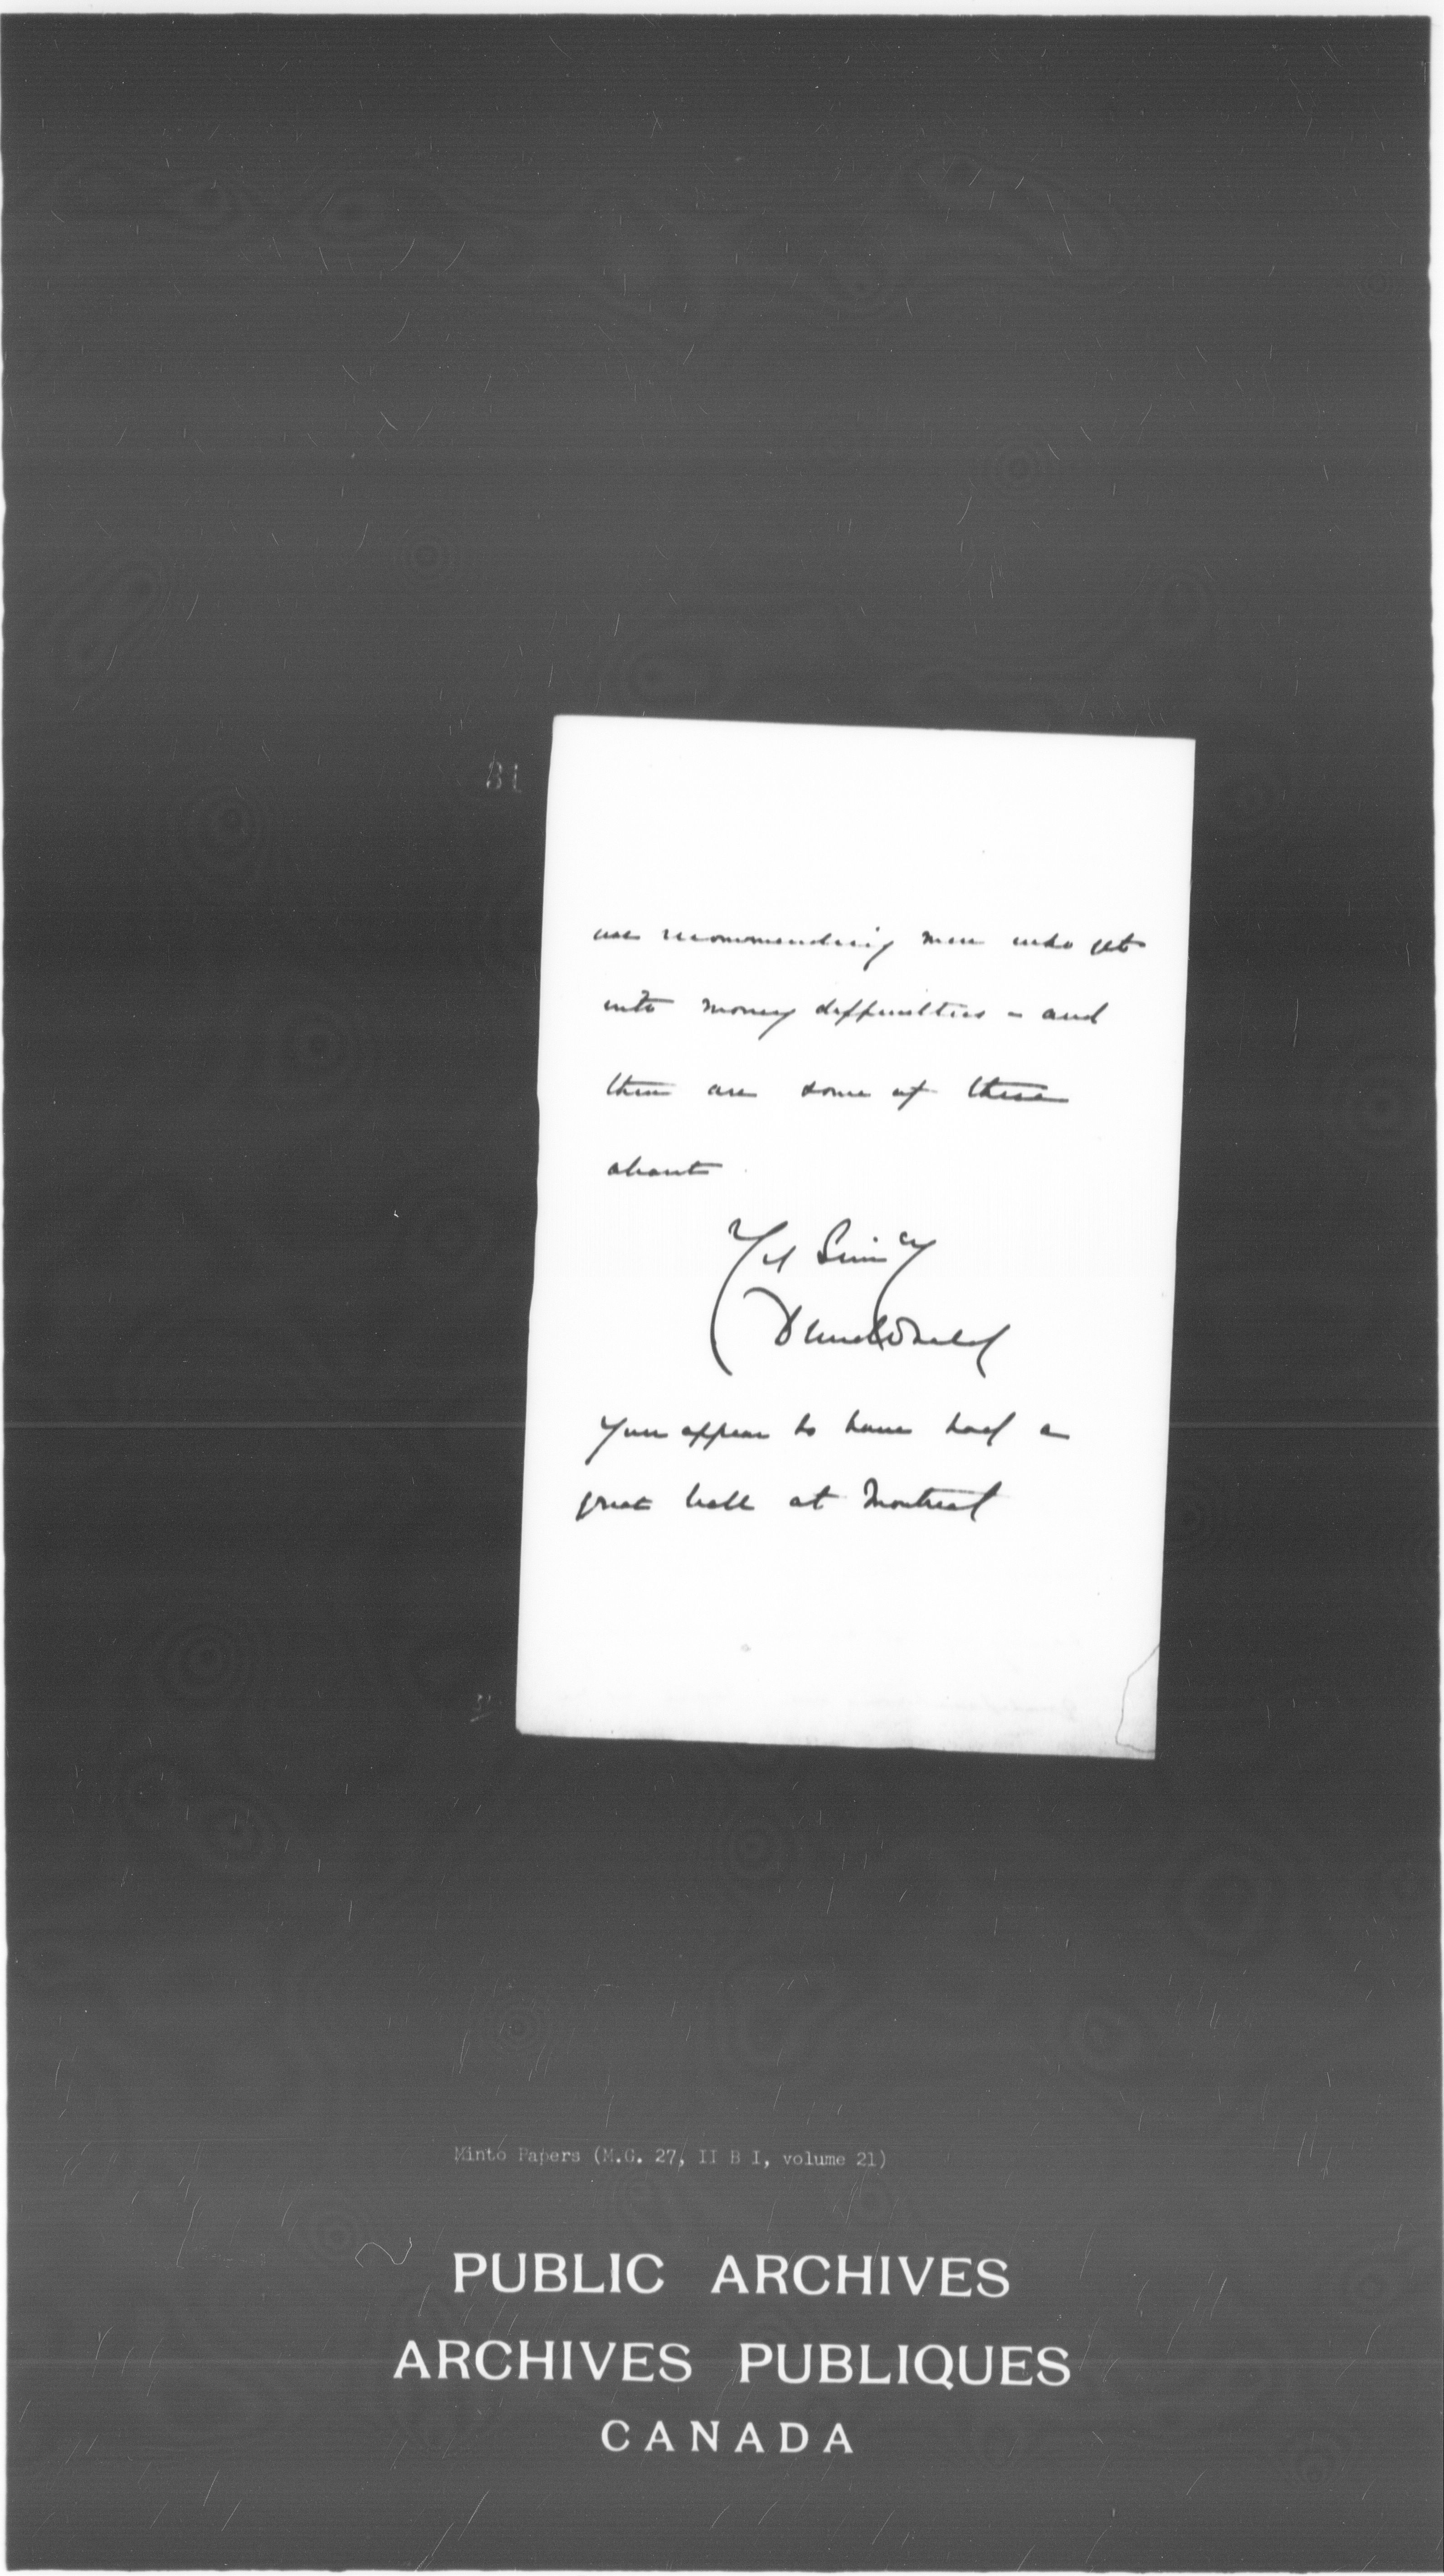 31
recommending men who get
into money difficulties - and
there are some of these
about.
Yrs Sincy
Dundonald
You appear to have had a
great ball at Montreal
Minto Papers (M.G. 27, II B I, volume 21)
PUBLIC ARCHIVES
ARCHIVES PUBLIQUES
CANADA